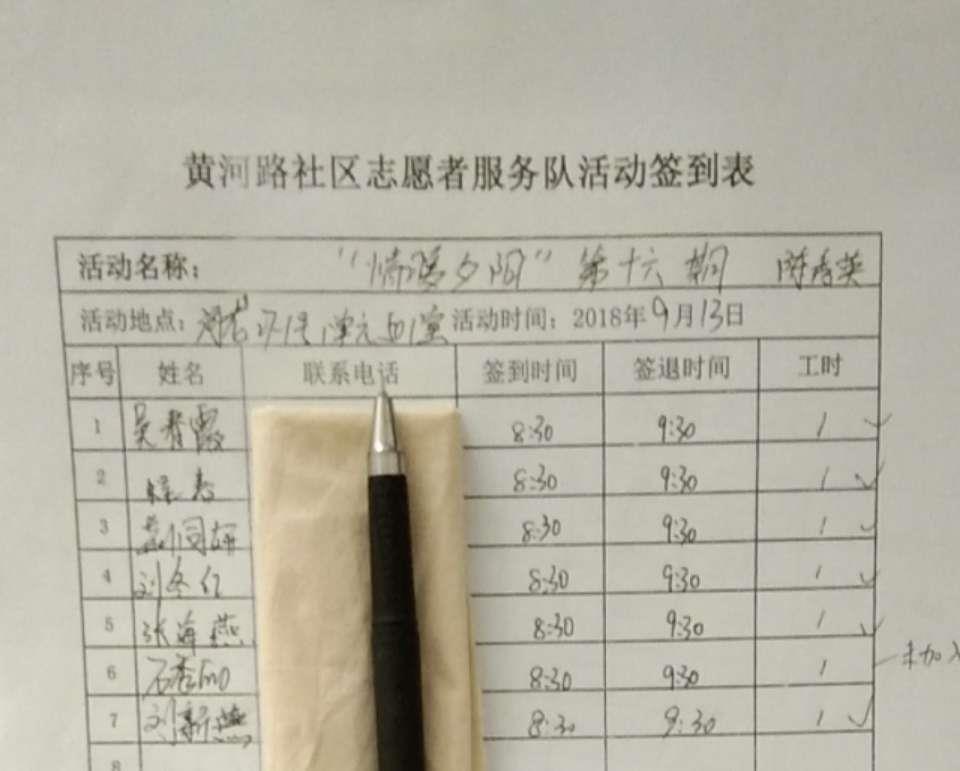 黄河路社区志愿者服务队活动签到表
活动名称： “情暖夕阳”第十六期 陈秀英
活动地点： 1单元 活动时间：2018年9月13日
序号 姓名 联系电话 签到时间 签退时间 工时
1 吴春霞 8:30 9:30 1 ✓
2 8:30 9:30 1 ✓
3 8:30 9:30 1 ✓
4 刘冬仁 8:30 9:30 1 ✓
5 张海燕 8:30 9:30 1 ✓
6 石秀 8:30 9:30 1 未加入
7 刘新燕 8:30 9:30 1 ✓
8